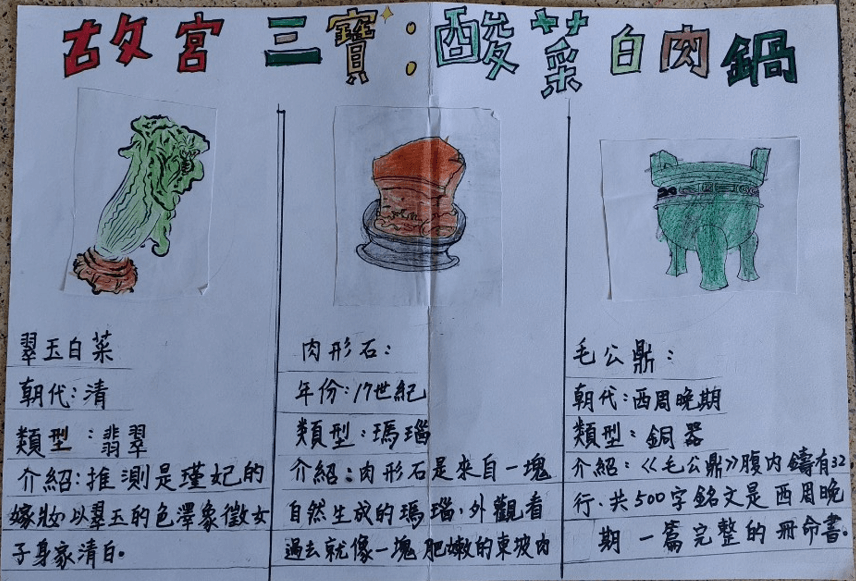 故宮三寶:酸菜白肉鍋
翠玉白菜
朝代:清
類型:翡翠
介紹:推測是瑾妃的
嫁妝以翠玉的色澤象徵女
子身家清白。
肉形石:
年份:17世紀
類型:瑪瑙
介紹:肉形石是來自一塊
自然生成的瑪瑙,外觀看
過去就像一塊肥嫩的東坡肉
毛公鼎:
朝代:西周晚期
類型:銅器
介紹:《毛公鼎》腹內鑄有32
行、共500字銘文是西周晚
期一篇完整的冊命書。